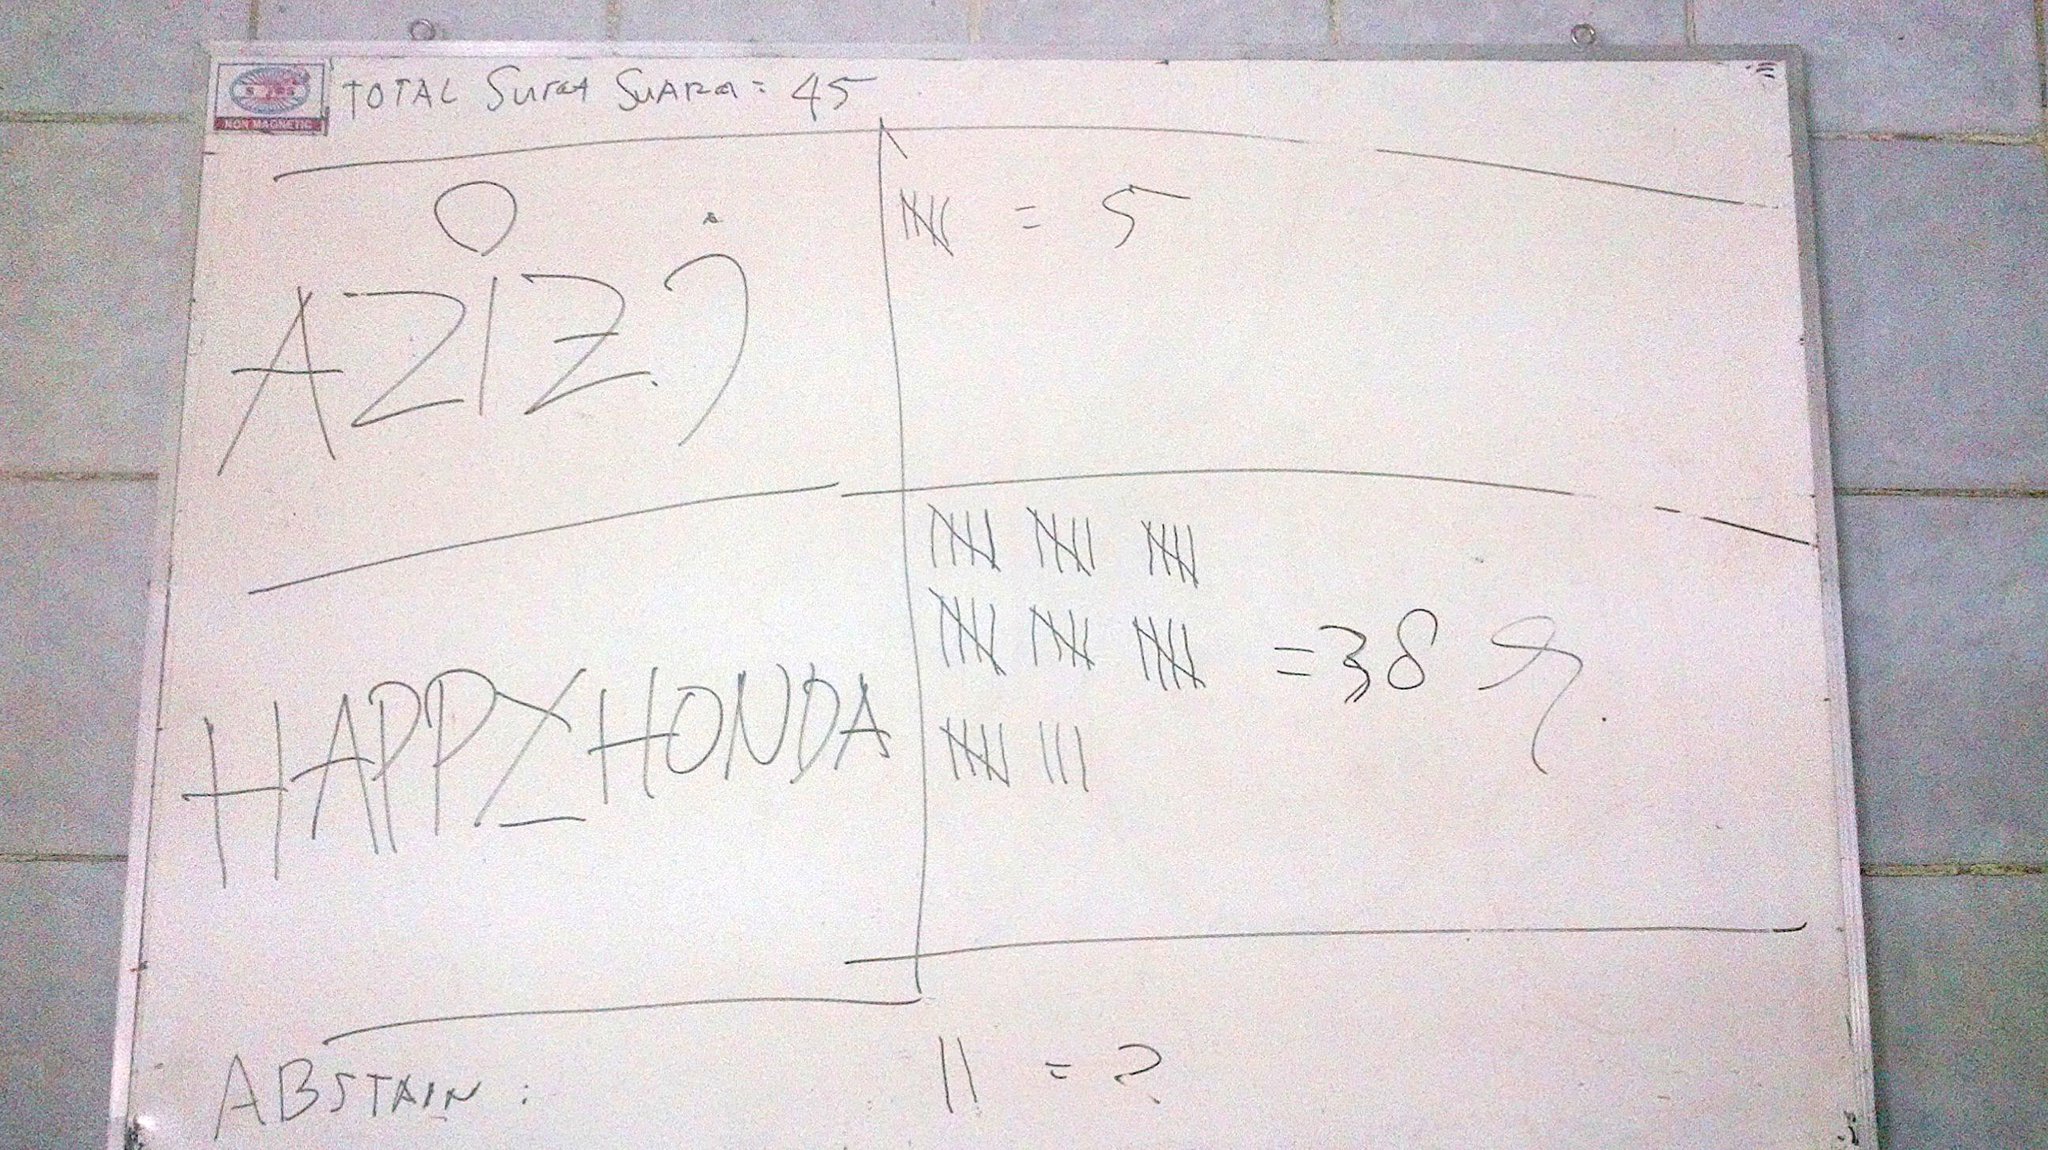 TOTAL SURAT SUARA = 45
NON MAGNETIC
AZIZ.
= 5
HAPPY HONDA
= 38
ABSTAIN :
11 = 2